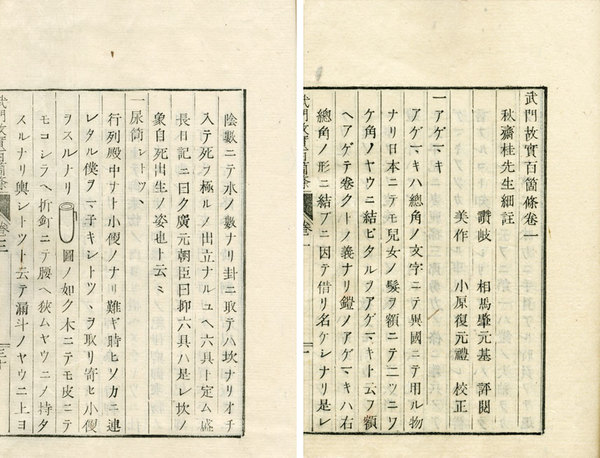 武門故實百箇條卷一
秋齋桂先生細註
讃岐 相馬肇元基 評閲
美作 小原復元禮 校正
一アゲマキ
アゲマキハ總角ノ文字ニテ異國ニテ用ル物
ナリ日本ニテモ兒女ノ髮ヲ額ニテ二ツニワ
ケ角ノヤウニ結ビタルヲアゲマキト云フ額
ヘアゲテ卷クトノ義ナリ鎧ノアゲマキハ右
總角ノ形ニ結ブニ因テ借リ名ケシナリ是レ
武門故實百箇條 卷一
陰數ニテ水ノ數ナリ卦ニ取テハ坎ナリオチ
入テ死ヲ極ルノ出立ナルユヘ六具ト定ム盛
長日記ニ曰ク廣元朝臣曰抑六具ハ是レ坎ノ
象自死出生ノ姿也ト云ミ
一尿筒シトツヽ
行列殿中ナト小便ノナリ難ギ時ヒソカニ連
レタル僕ヲマ子キシトツヽヲ取リ寄セ小便
ヲスルナリ 圖ノ如ク木ニテモ皮ニテ
モコシラヘ折釘ニテ腰ヘ狹ムヤウニノ持タ
スルナリ輿シトツト云テ漏斗ノヤウニ上ヨ
武門故實百箇條 卷三